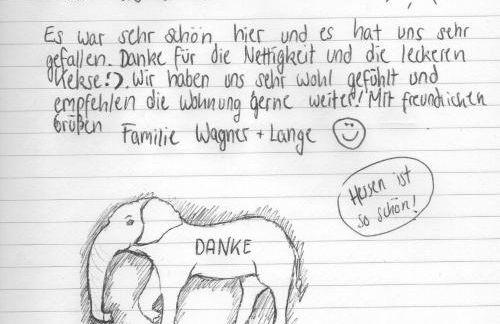 Es war sehr schön hier und es hat uns sehr
gefallen. Danke für die Nettigkeit und die leckeren
Kekse! :). Wir haben uns sehr wohl gefühlt und
empfehlen die Wohnung gerne weiter! Mit freundlichen
Grüßen
Familie Wagner + Lange
Hessen ist
so schön!
DANKE